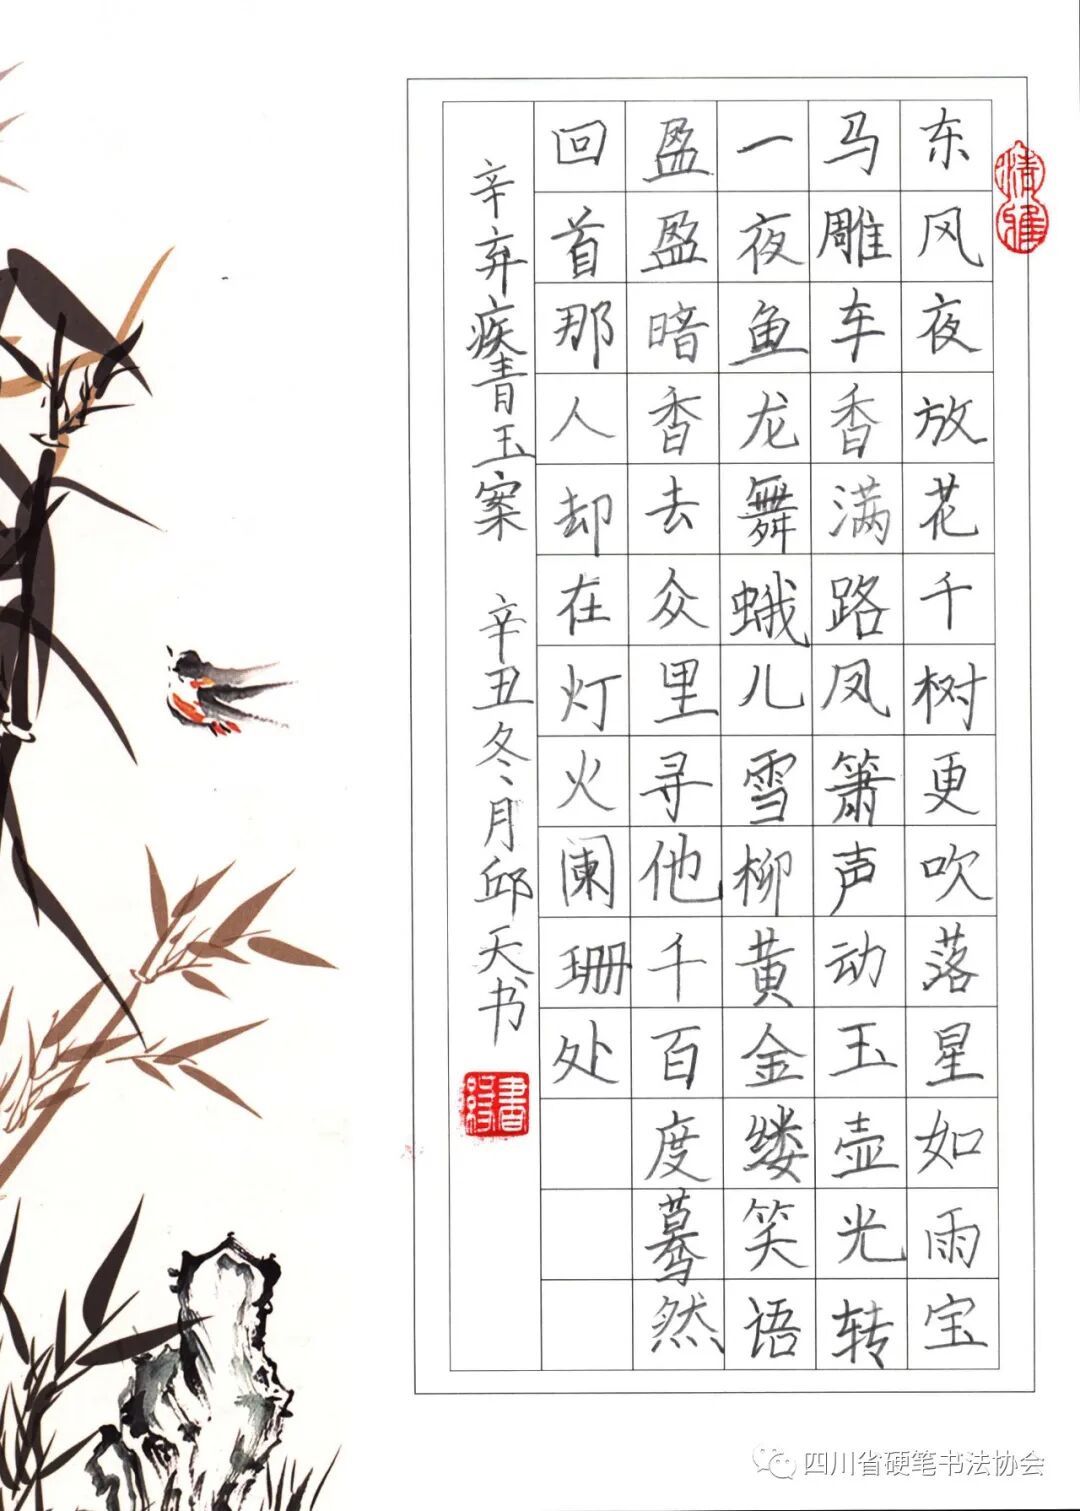 东风夜放花千树更吹落星如雨宝
马雕车香满路凤箫声动玉壶光转
一夜鱼龙舞蛾儿雪柳黄金缕笑语
盈盈暗香去众里寻他千百度蓦然
回首那人却在灯火阑珊处
辛弃疾青玉案 辛丑冬月邱天书
清雅
四川省硬笔书法协会